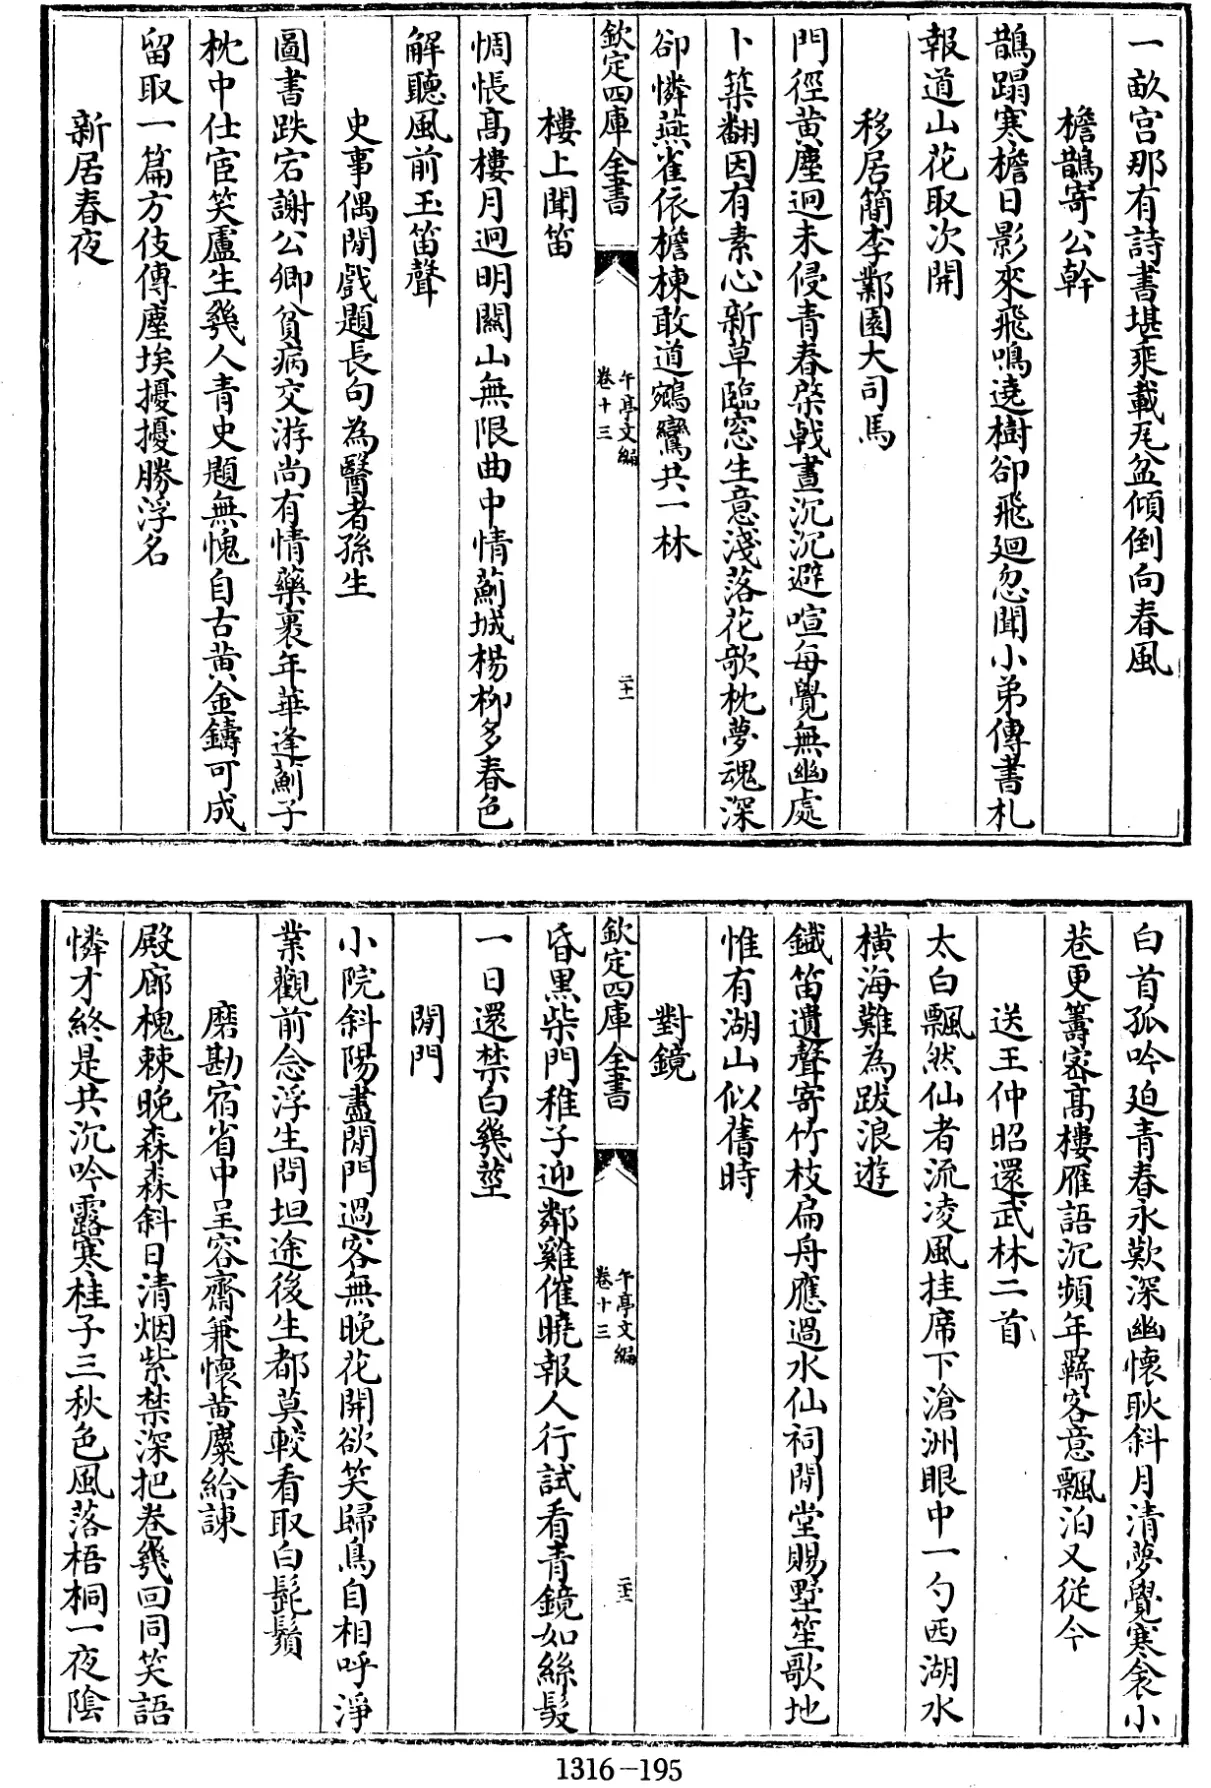 一畝宫那有詩書堪乘載瓦盆傾倒向春風
檐鵲寄公幹
鵲蹋寒檐日影來飛鳴遶樹卻飛廻忽聞小弟傳書札
報道山花取次開
移居簡李鄴園大司馬
門徑黄塵迥未侵青春棨戟晝沉沉避喧每覺無幽處
卜築翻因有素心新草臨窓生意淺落花欹枕夢魂深
卻憐燕雀依檐棟敢道鵷鸞共一林
欽定四庫全書
午亭文編
卷十三
二十一
樓上聞笛
惆悵髙樓月迥明闗山無限曲中情薊城楊柳多春色
解聽風前玉笛聲
史事偶閒戲題長句為醫者孫生
圖書跌宕謝公卿貧病交游尚有情藥裹年華逢薊子
枕中仕宦笑盧生幾人青史題無愧自古黄金鑄可成
留取一篇方伎傳塵埃擾擾勝浮名
新居春夜
白首孤吟廹青春永歎深幽懷耿斜月清夢覺寒衾小
巷更籌密髙樓雁語沉頻年羇客意飄泊又從今
送王仲昭還武林二首
太白飄然仙者流凌風挂席下滄洲眼中一勺西湖水
橫海難為跋浪遊
鐡笛遺聲寄竹枝扁舟應過水仙祠閒堂賜墅笙歌地
惟有湖山似舊時
對鏡
欽定四庫全書
午亭文編
卷十三
二十二
昏黒柴門稚子迎鄰雞催曉報人行試看青鏡如絲髮
一日還禁白幾莖
閒門
小院斜陽盡閒門過客無晚花開欲笑歸鳥自相呼淨
業觀前念浮生問坦途後生都莫較看取白髭鬚
磨勘宿省中呈容齋兼懷黄麋給諫
殿廊槐棘晚森森斜日清烟紫禁深把卷幾回同笑語
憐才終是共沉吟露寒桂子三秋色風落梧桐一夜陰
1316-195